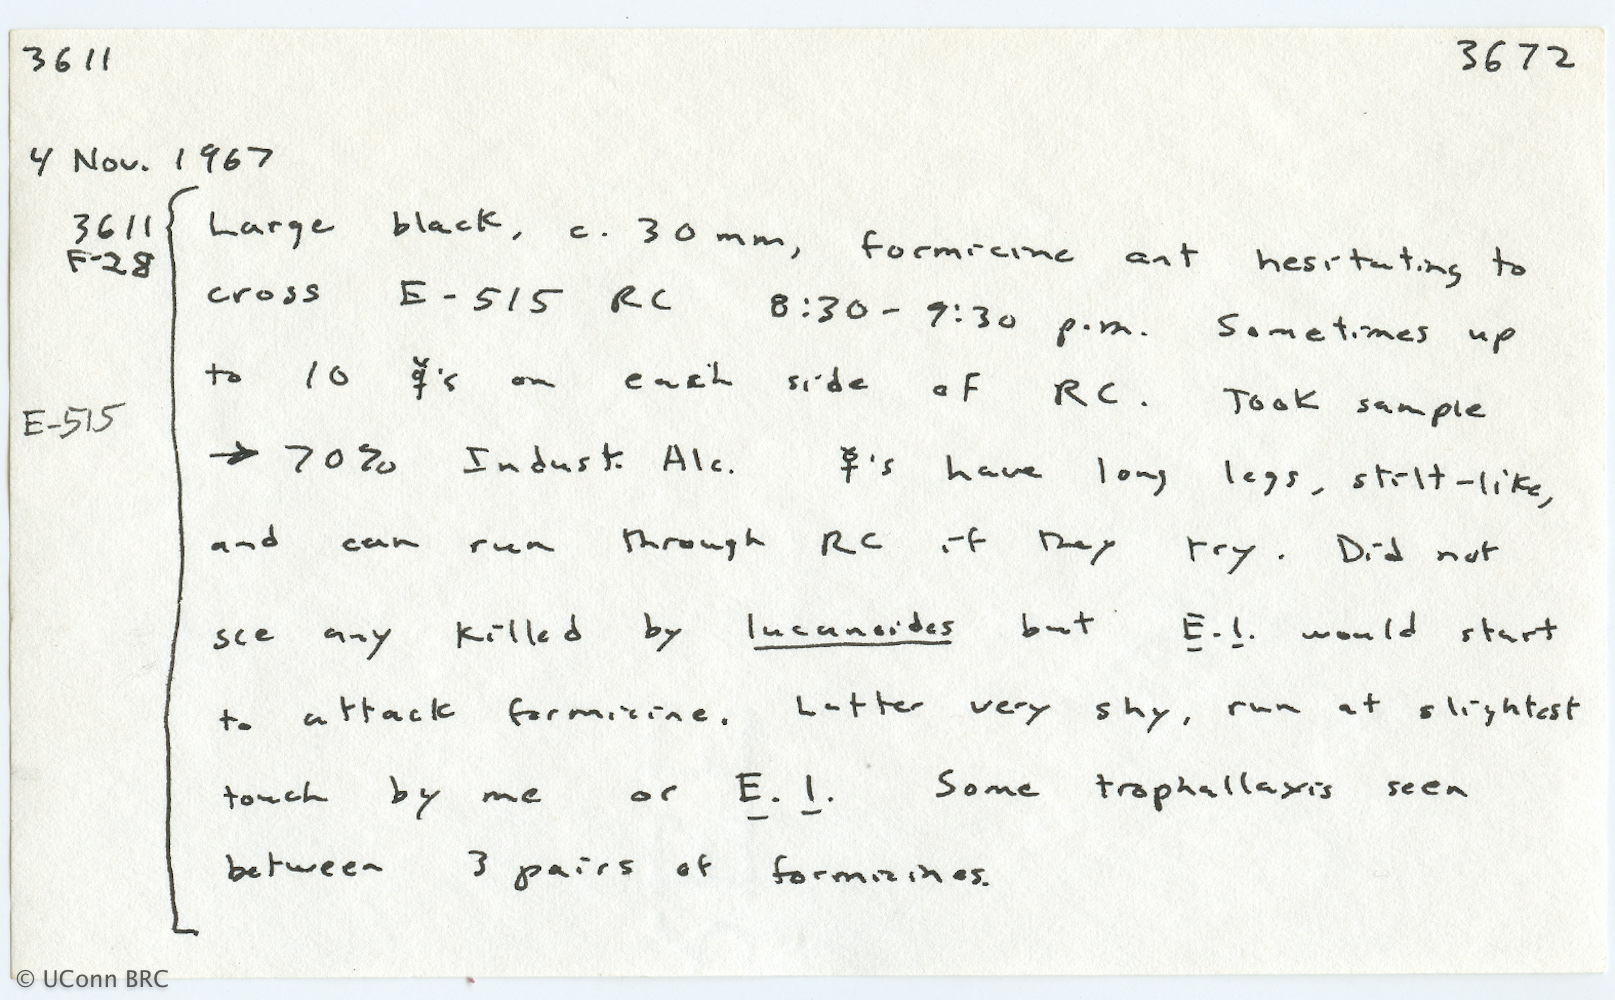 3611 3672
4 Nov. 1967
3611 Large black, c. 30 mm, formicine ant hesitating to
F-28
cross E-515 RC 8:30-9:30 p.m. Sometimes up
to 10 ☿'s on each side of RC. Took sample
E-515
→ 70% Indust. Alc. ☿'s have long legs, stilt-like,
and can run through RC if they try. Did not
see any killed by lucanoides but E.l. would start
to attack formicine. Latter very shy, run at slightest
touch by me or E.l. Some trophallaxis seen
between 3 pairs of formicines.
© UConn BRC